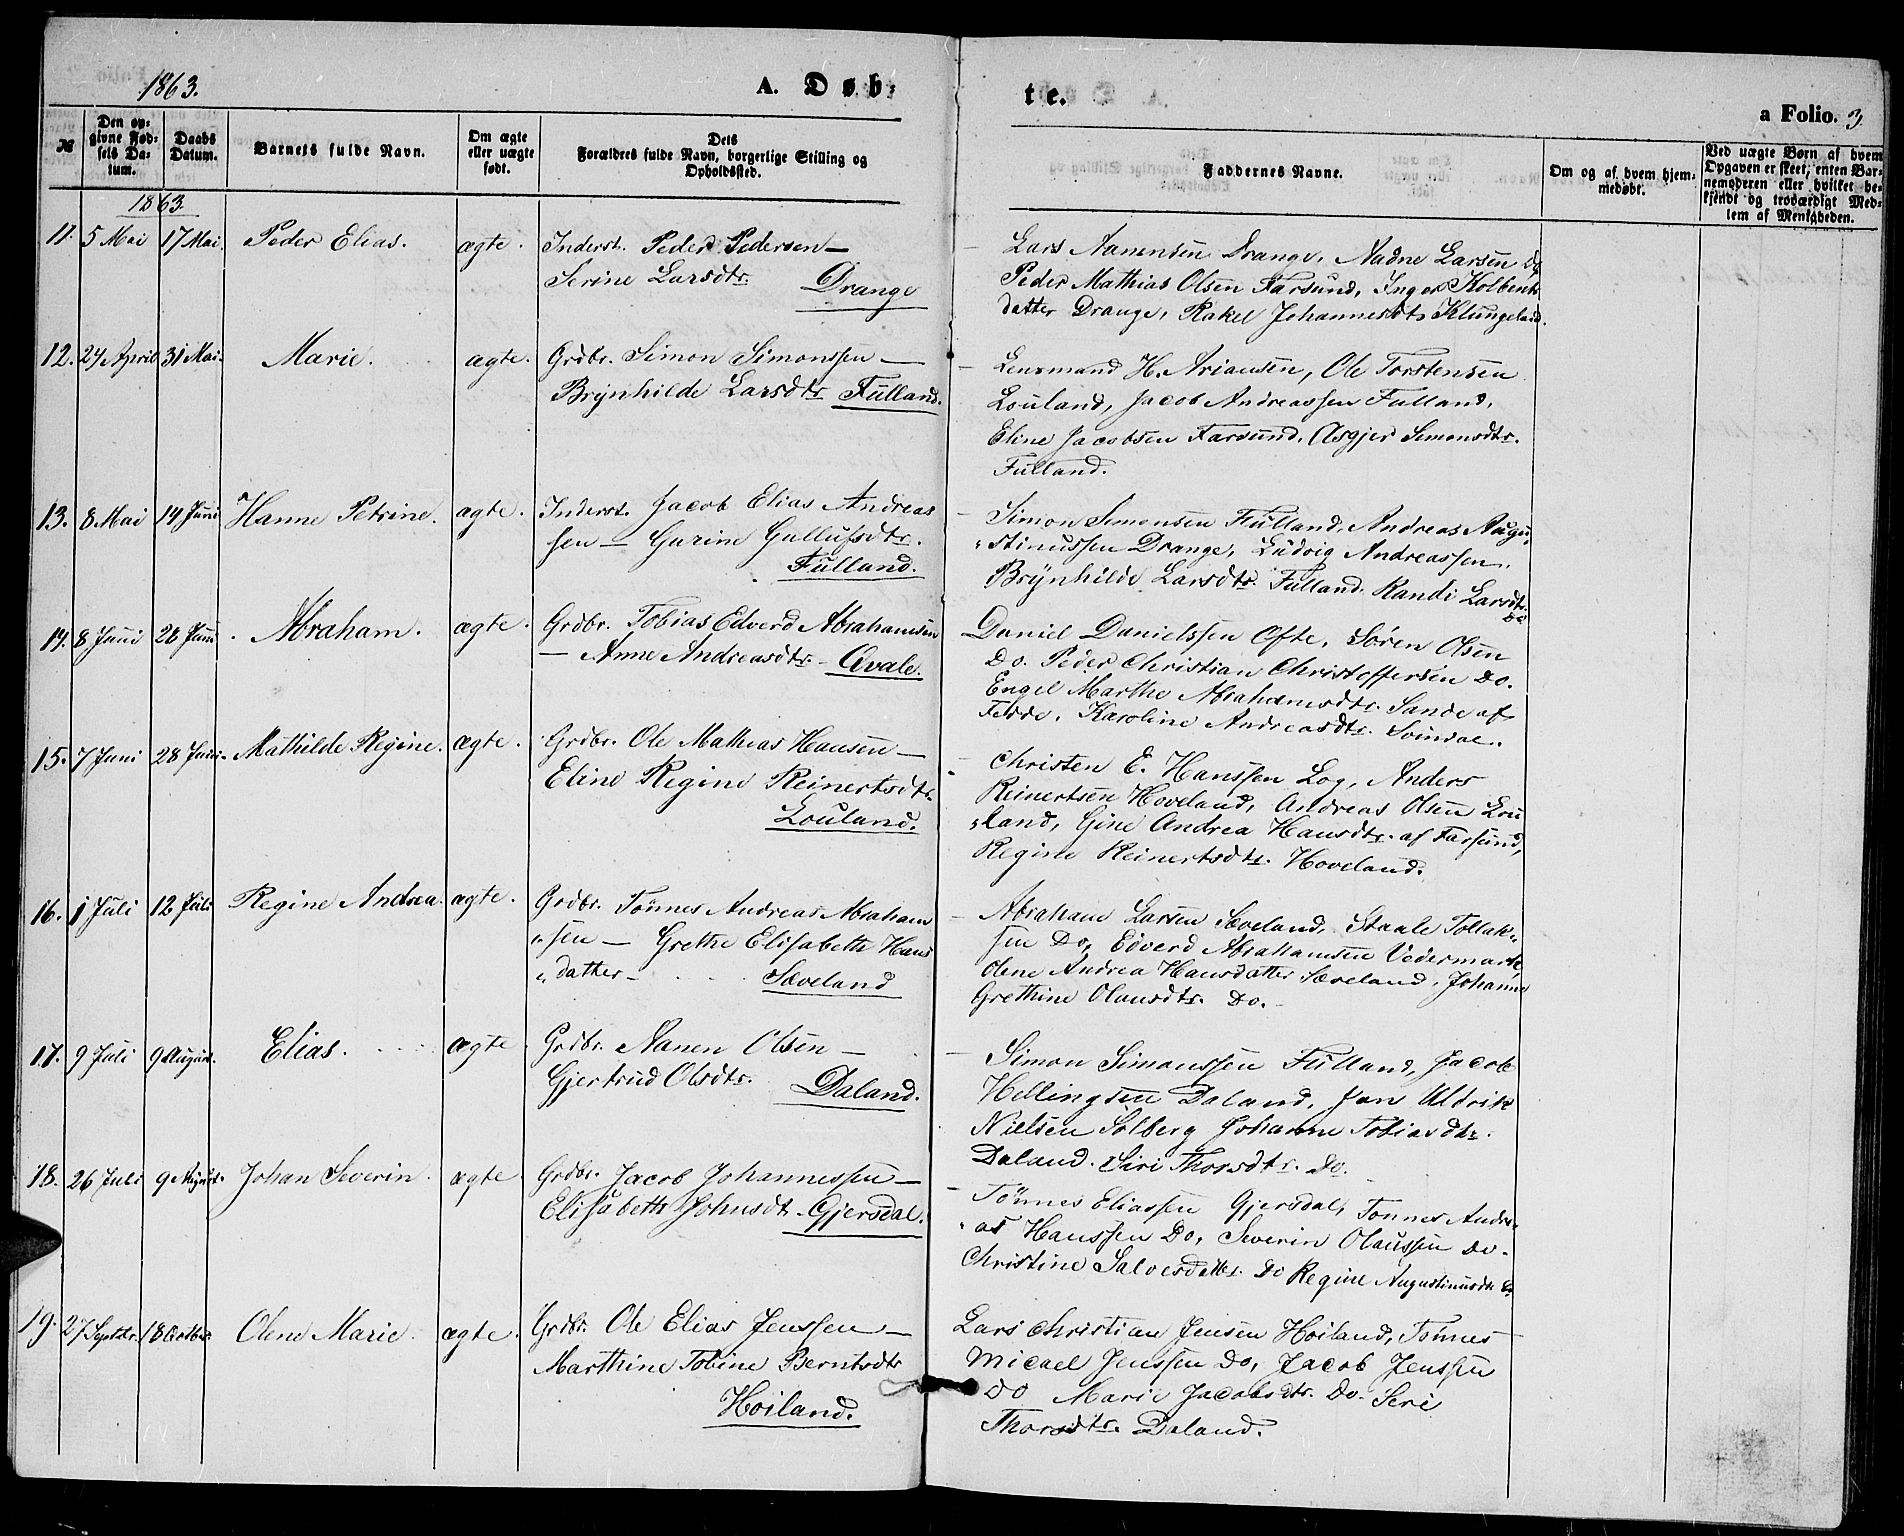 1863.
A. Døb-
te.
a Folio. 3
№
Den op-
givne Fød-
sels Da-
tum.
Daabs
Datum.
Barnets fulde Navn.
Om ægte
eller uægte
født.
Dets
Forældres fulde Navn, borgerlige Stilling og
Opholdssted.
Faddernes Navne.
Om og af hvem hjem-
medøbt.
Ved uægte Børn af hvem
Opgaven er skeet, enten Bar-
nemoderen eller hvilket be-
kjendt og troværdigt Med-
lem af Menigheden.
1863.
11. 5 Mai 17 Mai. Peder Elias. ægte. Inderst. Peder Pedersen —
Serine Larsdtr. Drange
Lars Aanensen Drange, Aadne Larsen Do
Peder Mathias Olsen Farsund, Inger Kolbents
datter Drange, Rakel Johannesdtr Klungeland.
12. 24 April 31 Mai. Marie. ægte. Grdbr. Simon Simonssen —
Brynhilde Larsdtr Fulland.
Lensmand H. Ariansen, Ole Torstensen
Louland, Jacob Andreassen Fulland,
Eline Jacobsen Farsund, Asgjer Simonsdtr.
Fulland.
13. 8 Mai 14 Juni Hanne Petrine. ægte. Inderst. Jacob Elias Andreas
sen — Gurine Gullufsdtr.
Fulland.
Simon Simonsen Fulland, Andreas Augu„
„stinussen Drange, Ludvig Andreassen,
Brynhilde Larsdtr. Fulland. Randi Larsdtr.
Do
14. 8 Juni 28 Juni. Abraham. ægte. Grdbr. Tobias Edverd Abrahamsen
— Anne Andreasdtr. — Qvale.
Daniel Danielssen Ofte, Søren Olsen
Do. Peder Christian Christoffersen Do.
Engel Marthe Abrahamsdtr. Sande af
Fedde, Karoline Andreasdtr. Soindal.
15. 7 Juni 28 Juni. Mathilde Regine. ægte. Grdbr. Ole Mathias Hansen —
Eline Regine Reinertsdtr.
Louland.
Christen E. Hanssen Log, Anders
Reinertsen Hoveland, Andreas Olsen Lou
„land, Gine Andrea Hansdtr. af Farsund,
Regine Reinertsdtr. Hoveland.
16. 1 Juli 12 Juli Regine Andrea. ægte. Grdbr. Tønnes Andreas Abraham
„sen — Grethe Elisabeth Hans
„datter — Sæveland
Abraham Larsen Sæveland, Staale Tollak„
sen Do, Edverd Abrahamsen Vedermark,
Olene Andrea Hansdatter Sæveland, Johanne
Grethine Olausdtr. Do.
17. 9 Juli 9 August. Elias. ægte. Grdbr. Aanen Olsen —
Gjertrud Olsdtr. Daland.
Simon Simonssen Fulland, Jacob
Hellingsen Daland, Jan Uldrik
Nielsen Solberg Johanne Tobiasdtr.
Daland. Siri Thorsdtr. Do.
18. 26 Juli 9 August. Johan Severin. ægte Grdbr. Jacob Johannessen —
Elisabeth Johnsdt. Gjersdal.
Tønnes Eliassen Gjersdal, Tønnes Andre„
„as Hanssen Do, Severin Olaussen Do.
Christine Salvesdatter. Do Regine Augustinusdtr Do
19. 27 Septbr. 18 Octbr. Olene Marie. ægte. Grdbr. Ole Elias Jenssen —
Marthine Tobine Berntsdtr
Hoiland.
Lars Christian Jensen Hoiland, Tønnes
Micael Jenssen Do, Jacob Jenssen
Do Marie Jacobsdtr. Do. Seri
Thorsdtr. Daland.